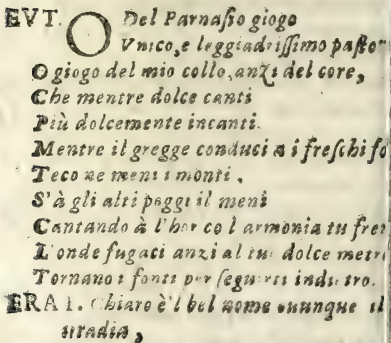 EVT. O Del Parnaſſo giogo
Vnico, e leggiadriſſimo paſtor
O giogo del mio collo, anzi del core,
Che mentre dolce canti
Più dolcemente incanti.
Mentre il gregge conduci a i freſchi fo
Teco ne meni i monti,
S'à gli alti poggi il meni
Cantando à l'hor co l armonia tu fren
L'onde fugaci anzi al tuo dolce metro
Tornano i fonti per ſeguirti indietro.
ERA I. Chiaro è'l bel nome ounque il
irradia,